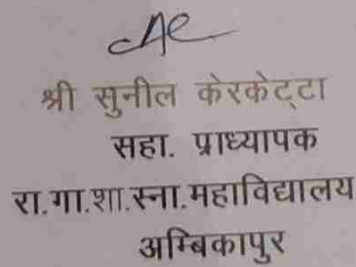 श्री सुनील केरकेट्टा
सहा. प्राध्यापक
रा.गा.शा.स्ना.महाविद्यालय
अम्बिकापुर